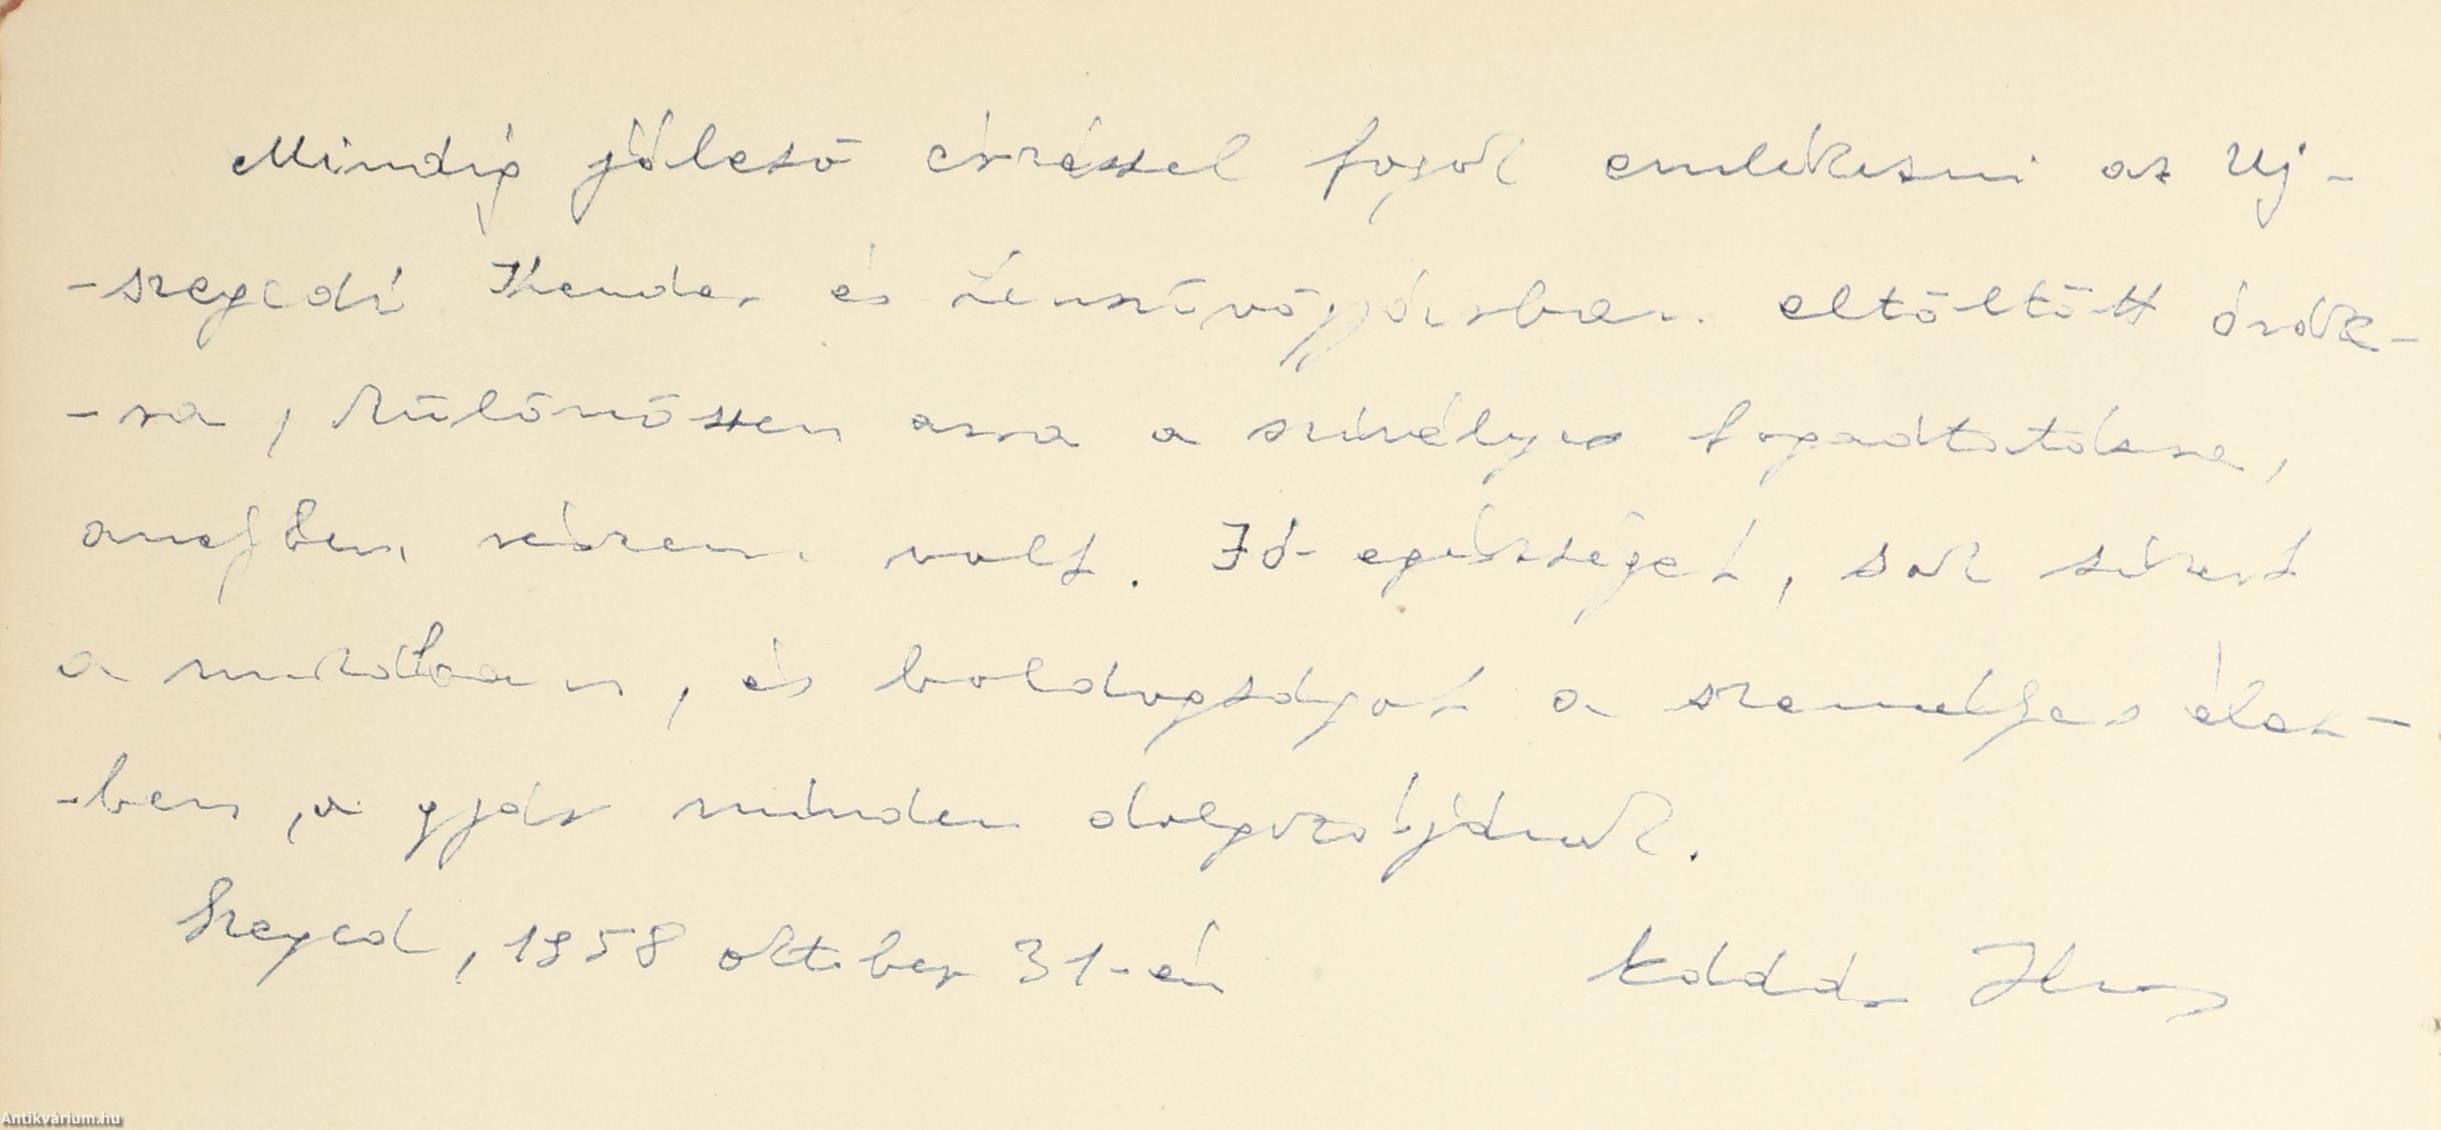 Mindig jóleső érzéssel fogok emlékezni az Uj-
-szegedi Kender és Lenszövőgyárban eltöltött órák-
-ra, különössen arra a szivélyes fogadtatásra,
amejben részem volt. Jó egészséget, sok sikert
a munkában, és boldogságot a személyes élet-
-ben, a gyár minden dolgozójának.
Szeged, 1958 oktober 31-én
Antikvárium.hu